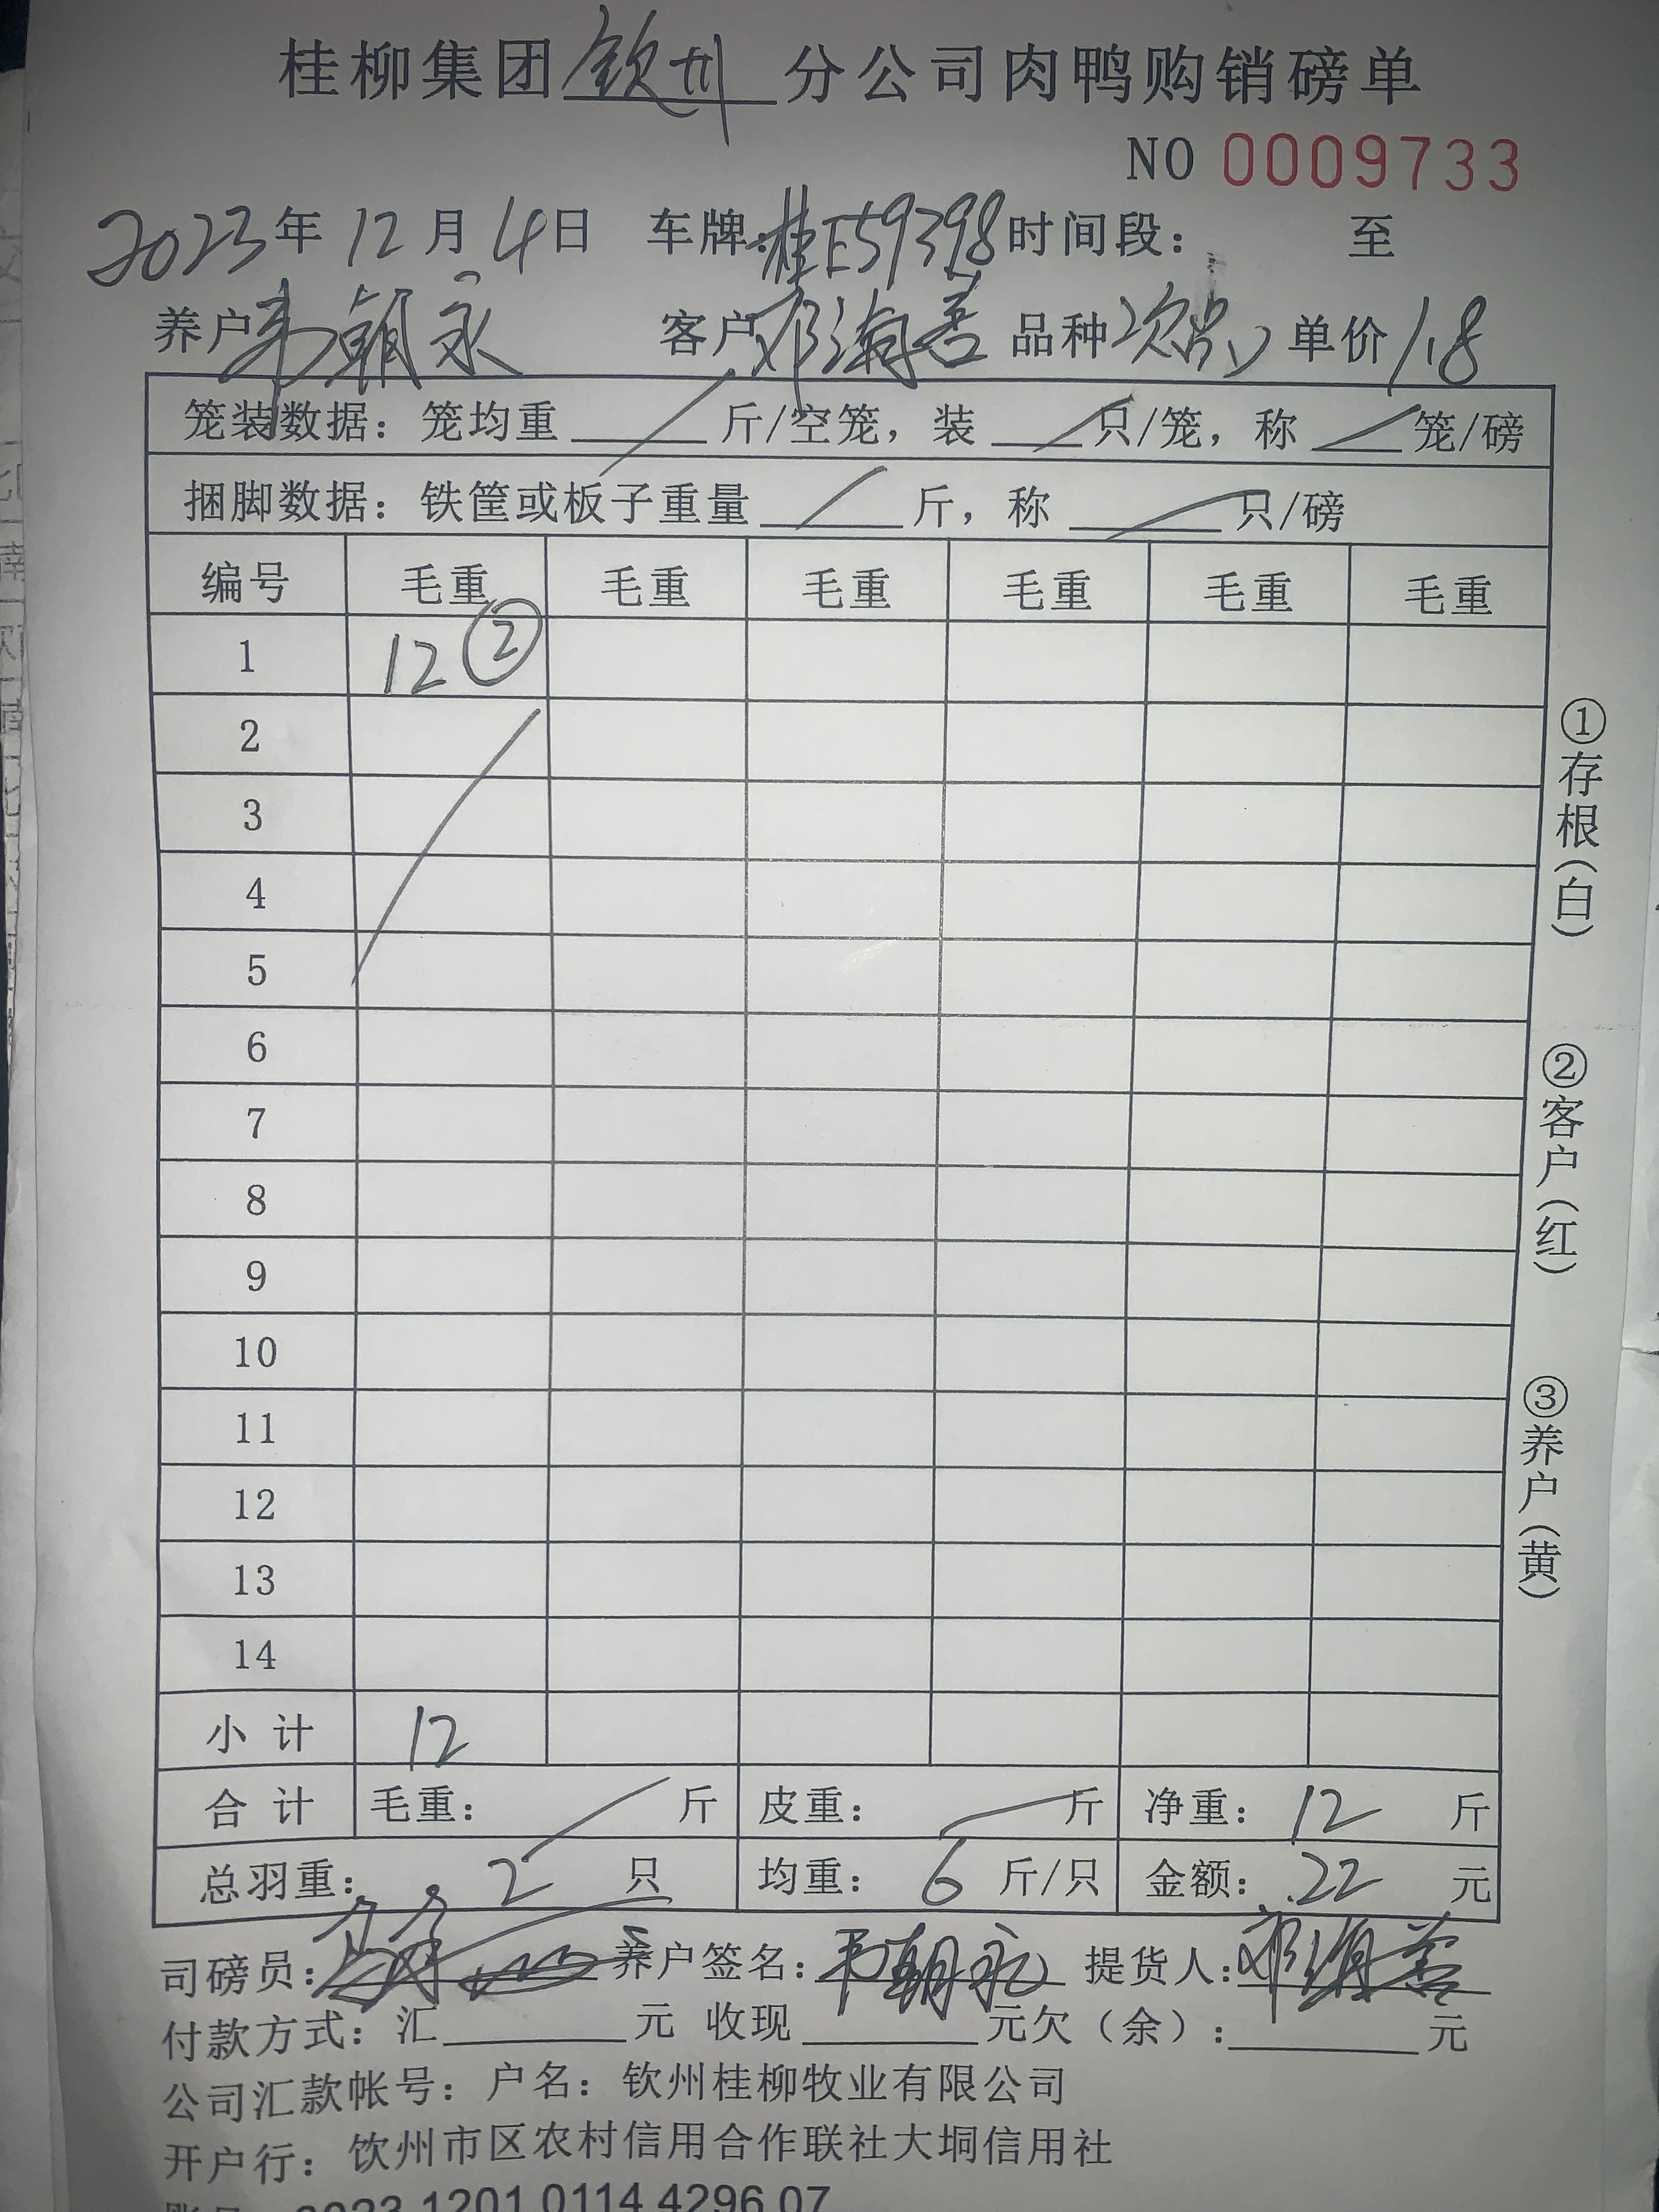 桂柳集团钦州分公司肉鸭购销磅单
NO 0009733
2023年12月4日 车牌:桂E59398时间段: 至
养户韦朝永 客户邓海善 品种次品 单价1.8
笼装数据:笼均重 斤/空笼,装 只/笼,称 笼/磅
捆脚数据:铁筐或板子重量 斤,称 只/磅
编号 毛重 毛重 毛重 毛重 毛重 毛重
1 12 ②
2
3
4
5
6
7
8
9
10
11
12
13
14
小 计 12
合 计 毛重: 斤 皮重: 斤 净重:12 斤
总羽重:2 只 均重:6 斤/只 金额:22 元
司磅员: 养户签名:韦朝永 提货人:邓海善
付款方式:汇 元 收现 元欠(余): 元
公司汇款帐号:户名:钦州桂柳牧业有限公司
开户行:钦州市区农村信用合作联社大垌信用社
①存根(白)
②客户(红)
③养户(黄)